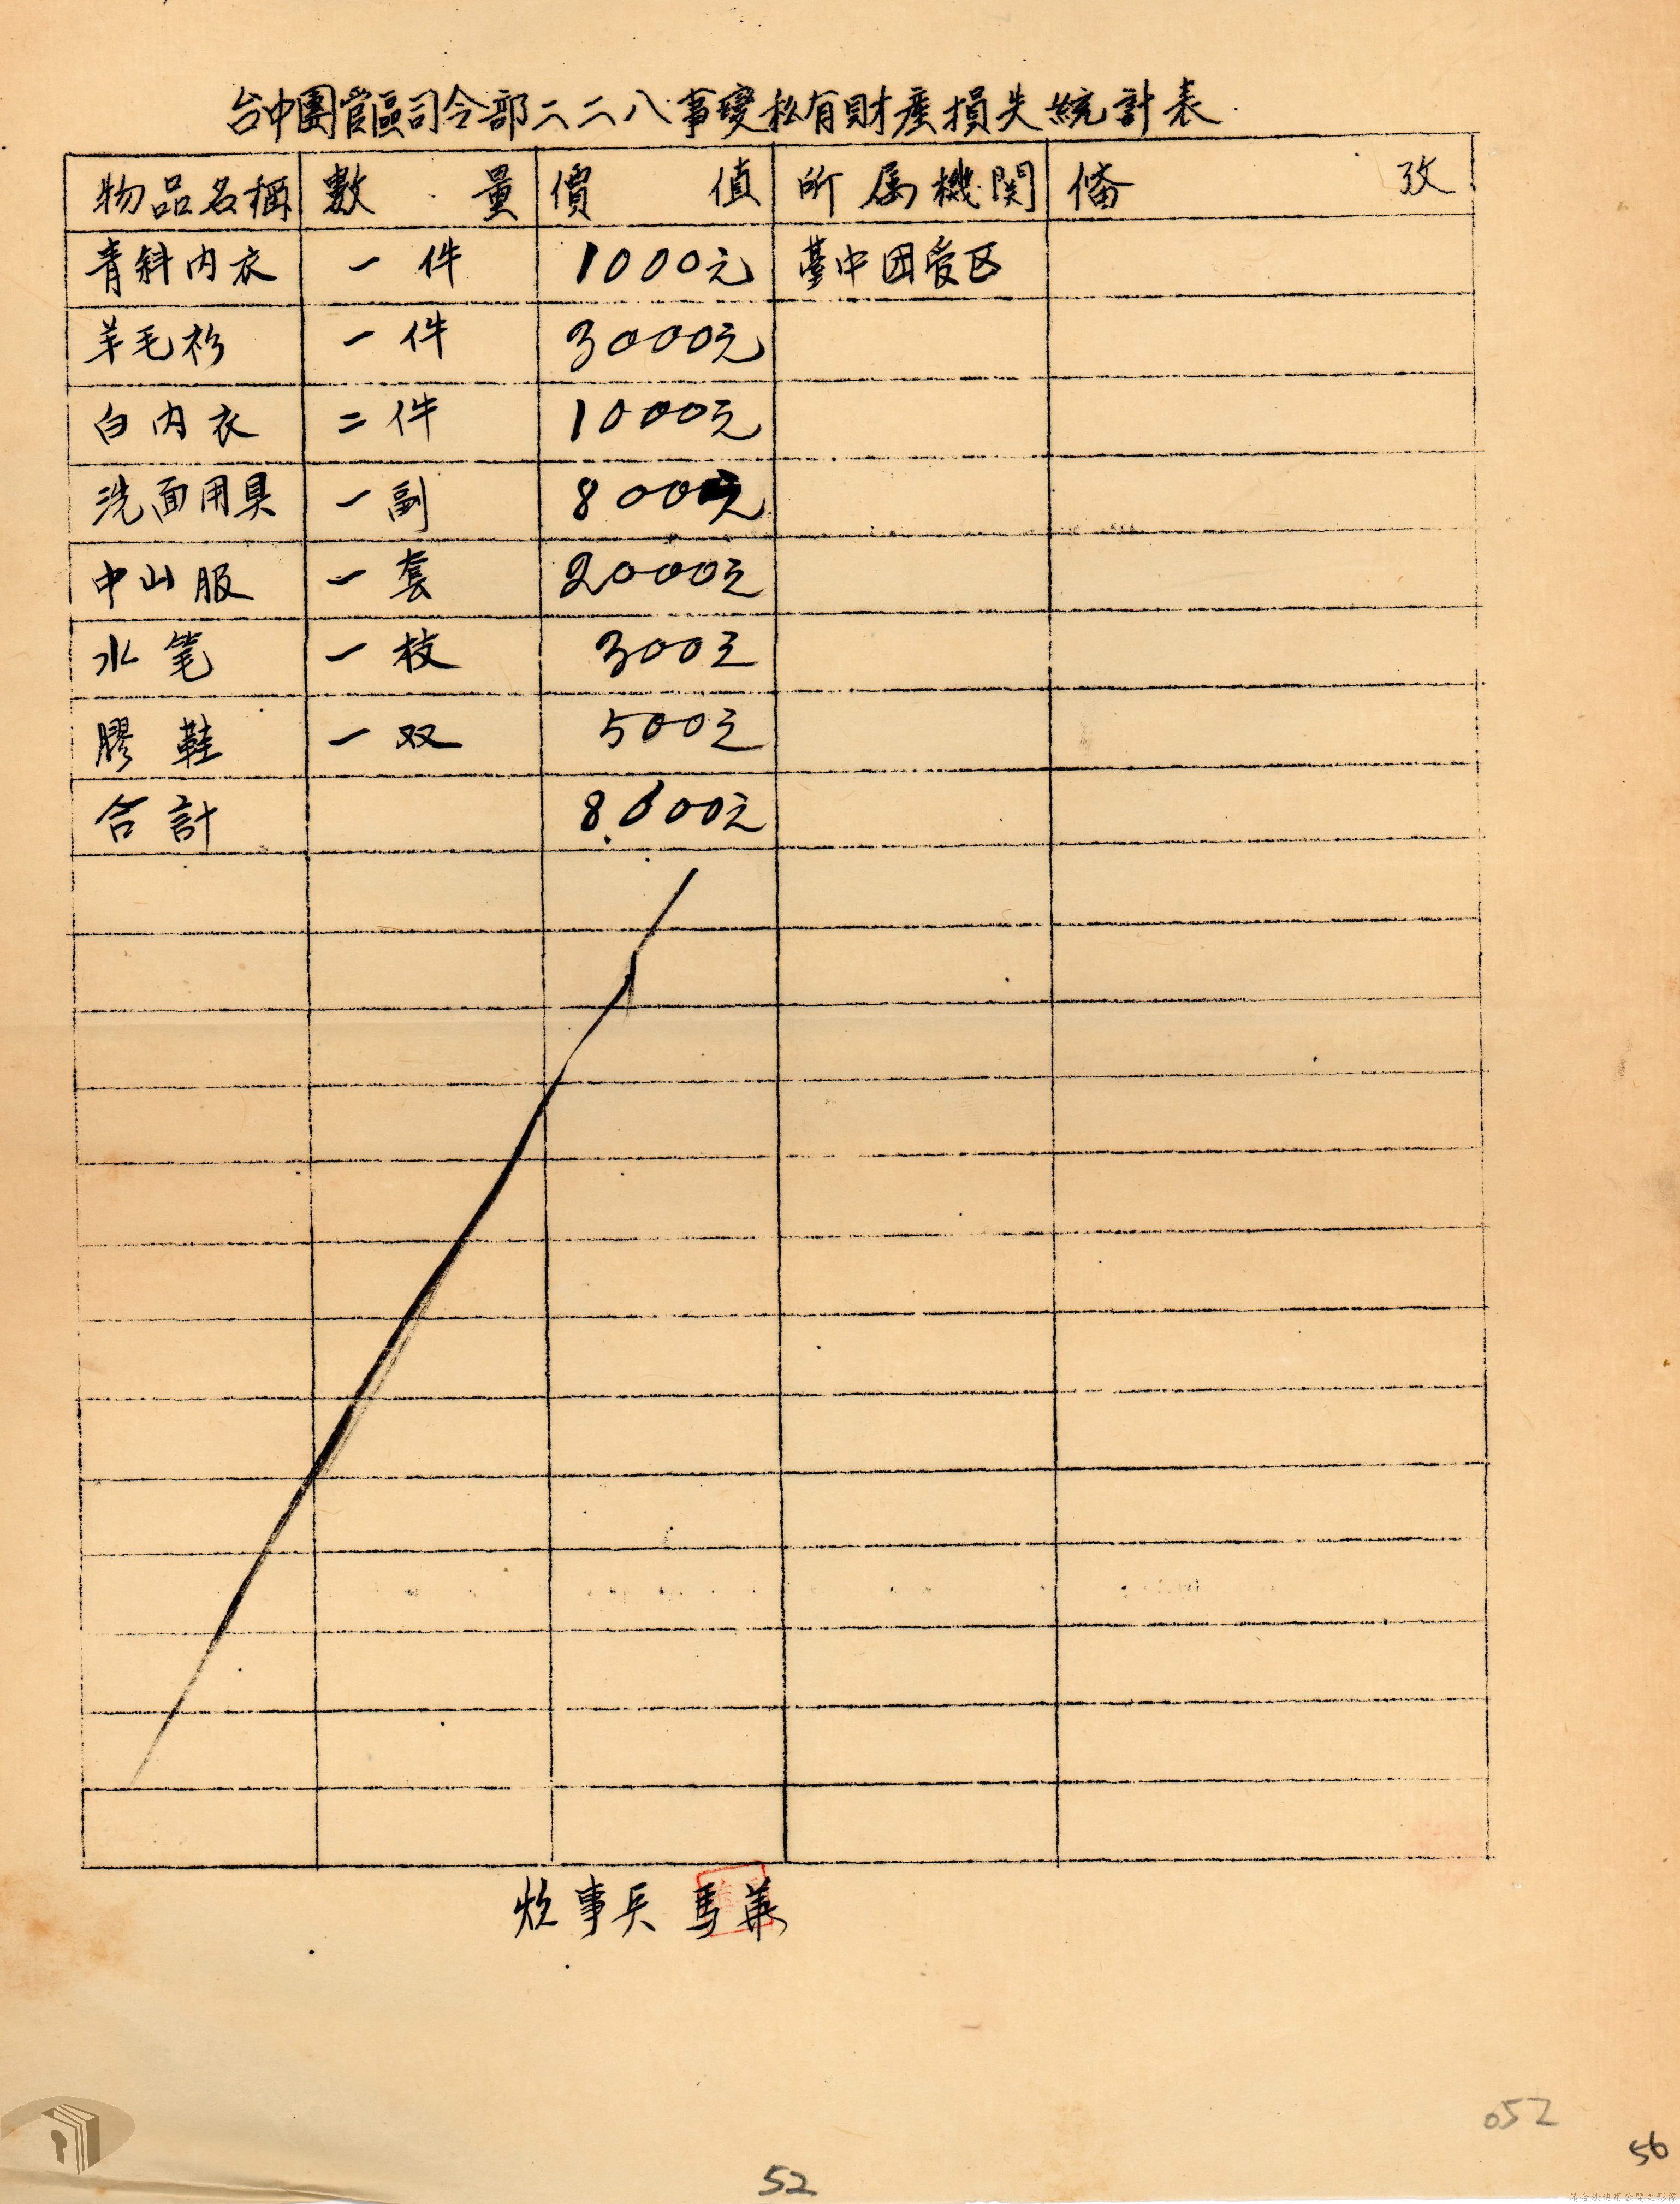 台中團管區司令部二二八事變私有財產損失統計表
物品名稱 數量 價值 所属機関 俻攷
青斜内衣 一件 1000元 臺中团管区
羊毛衫 一件 3000元
白内衣 二件 1000元
洗面用具 一副 800元
中山服 一套 2000元
水笔 一枝 300元
膠鞋 一双 500元
合計 8.600元
炊事兵 馬華
052
56
52
請合法使用公開之影像